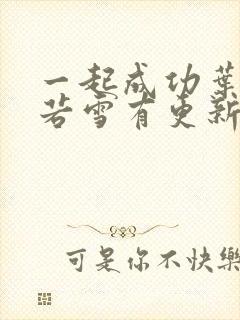 一起成功葉
若雪有更新
可是你不快樂